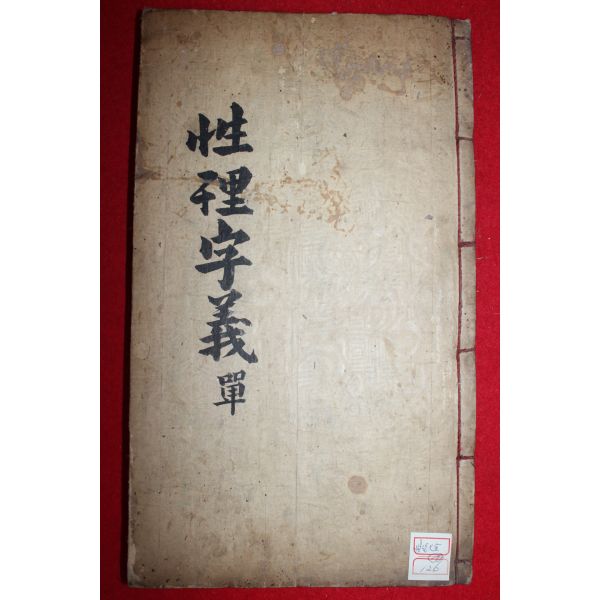 性理字義 單
126